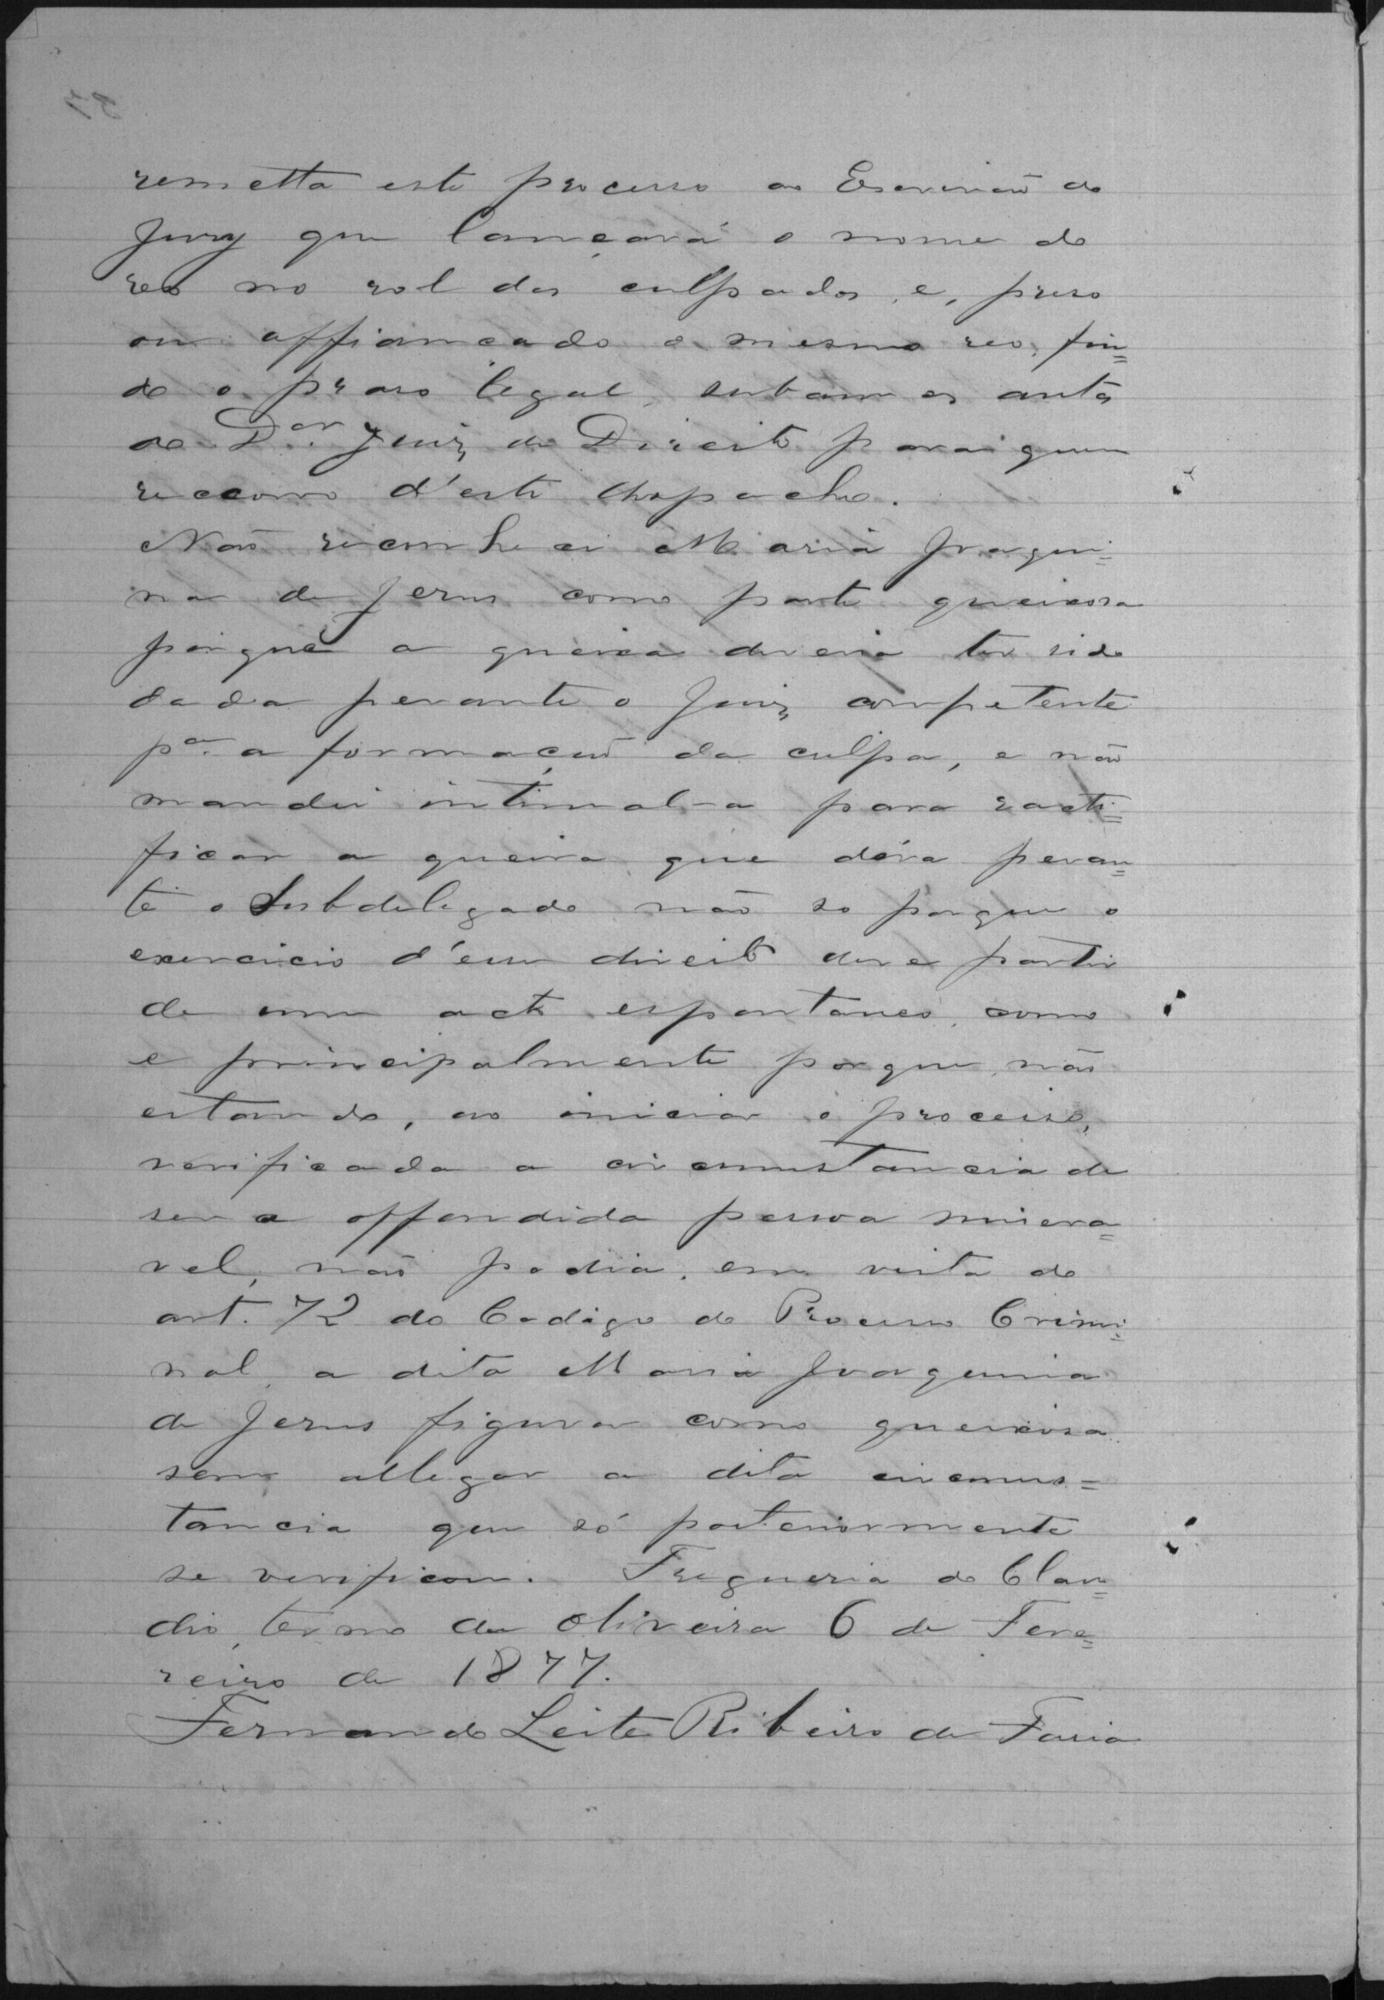 remetta este processo ao Escrivão do
Jury que lançará o nome do
reo no rol dos culpados, e, preso
ou affiançado o mesmo reo, fin=
do o praso legal, subam os autos
ao D.or Juiz de Direito para quem
recorro d'este despacho.
Não reconheci Maria Joaqui=
na de Jesus como parte queixosa
porque a queixa deveria ter sido
dada perante o Juiz competente
p.a a formação da culpa, e não
mandei intimal-a para racti=
ficar a queixa que déra peran=
te o Subdelegado não so porque o
exercicio d'esse direito deve partir
de um acto espontaneo, como
e principalmente porque, não
estando, ao iniciar o processo,
verificada a circumstancia de
ser a offendida pessoa misera=
vel, não podia, em vista do
art. 72 do Codigo do Processo Crimi=
nal, a dita Maria Joaquina
de Jesus figurar como queixosa
sem allegar a dita circums=
tancia que só posteriormente
se verificou. Freguesia do Clau=
dio, termo da Oliveira 6 de Feve=
reiro de 1877.
Fernando Leite Ribeiro de Faria